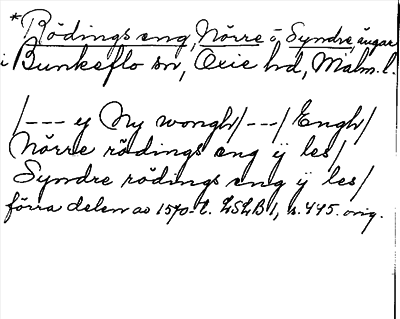 *Rödings eng, Nörre o. Syndre, ängar
i Bunkeflo sn, Oxie hd, Malm. l.
/--- y Ny wongh/---/Engh/
Nörre rödings eng ÿ les/
Syndre rödings eng ÿ les/
förra delen av 1570-t. LSLB 1, s. 445. orig.